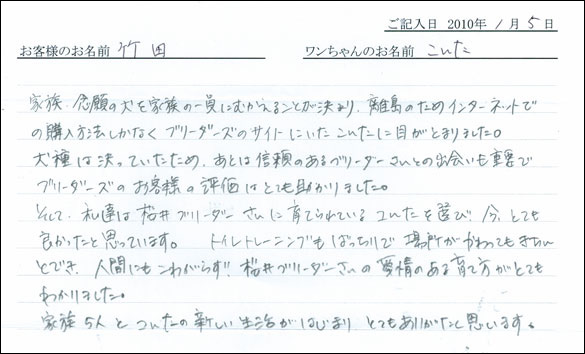 ご記入日 2010年 1月 5日
お客様のお名前 竹田 ワンちゃんのお名前 こいた
家族 念願の犬を家族の一員にむかえることが決まり、離島のためインターネットで
の購入方法しかなく ブリーダーズのサイトにいた こいたに目がとまりました。
犬種は決っていたため、あとは信頼のあるブリーダーさんとの出会いも重要で
ブリーダーズの お客様の評価はとても助かりました。
そして、私達は桜井ブリーダーさんに育てられているこいたを選び、今、とても
良かったと思っています。 トイレトレーニングもばっちりで 場所がかわってもきちん
とでき、人間にもこわがらず、桜井ブリーダーさんの愛情のある育て方がとても
わかりました。
家族5人とこいたの新しい生活がはじまり とてもありがたく思います。